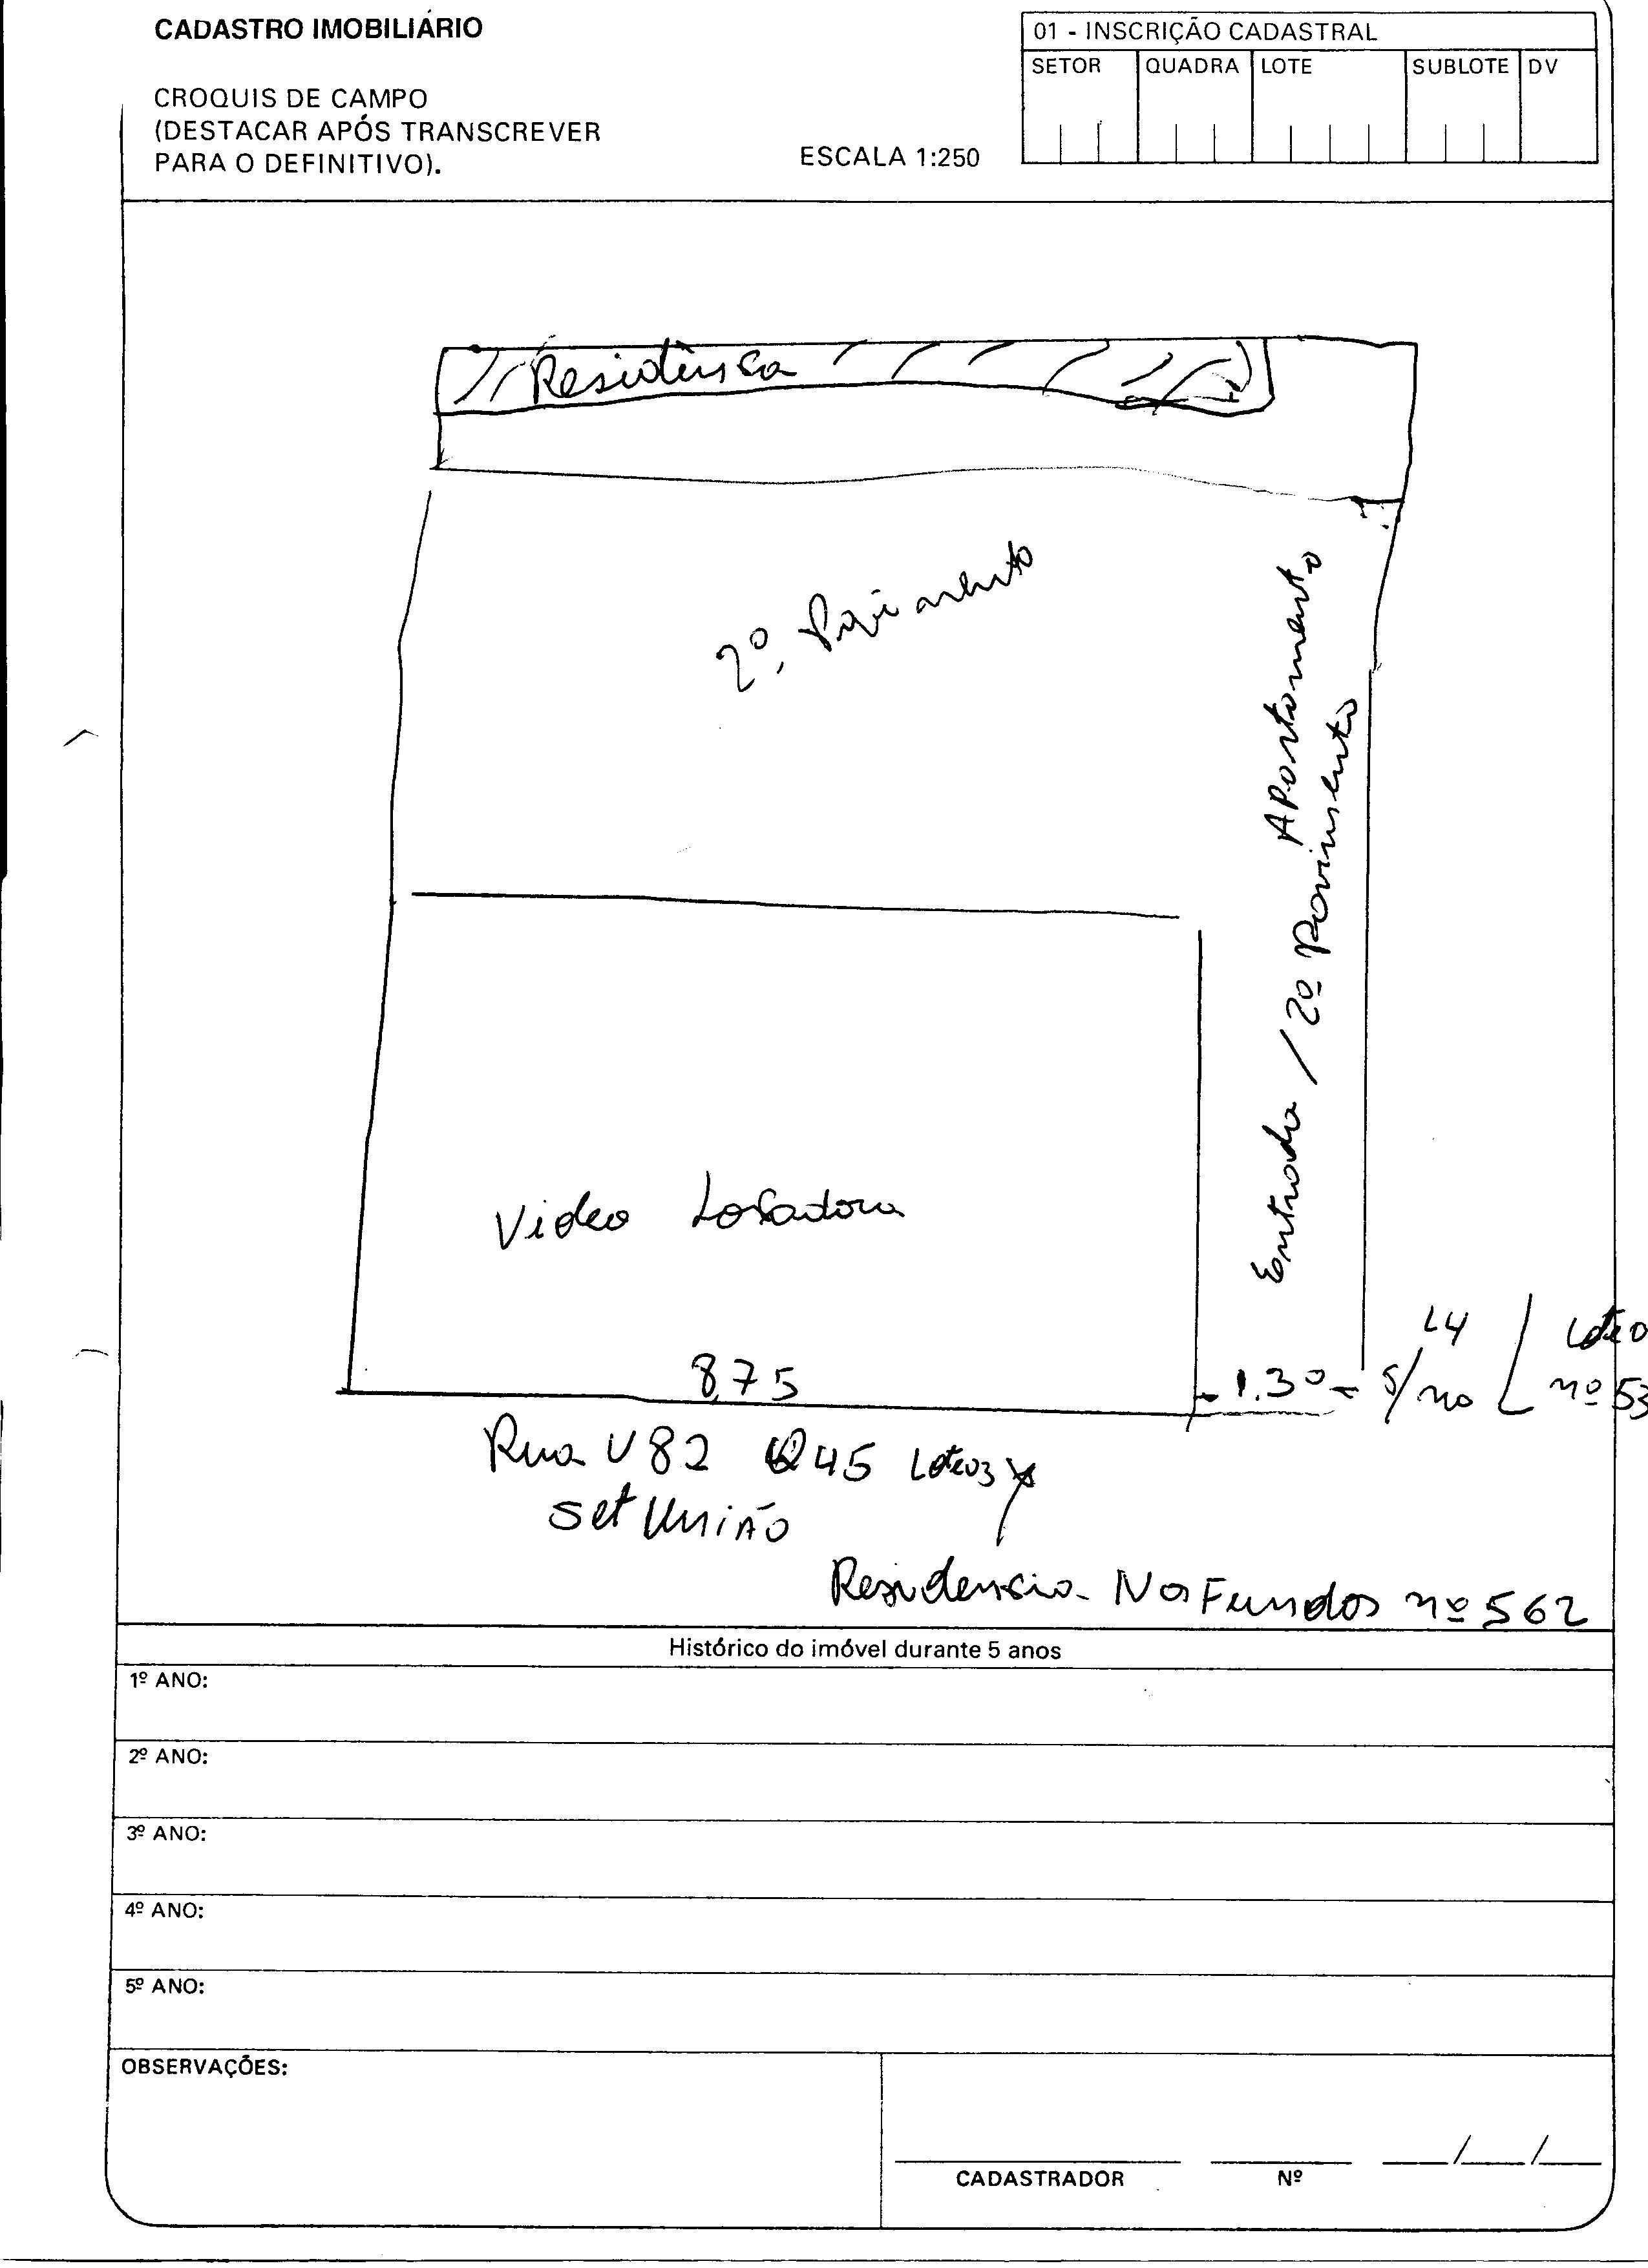 CADASTRO IMOBILIÁRIO
01 - INSCRIÇÃO CADASTRAL
SETOR QUADRA LOTE SUBLOTE DV
CROQUIS DE CAMPO
(DESTACAR APÓS TRANSCREVER
PARA O DEFINITIVO).
ESCALA 1:250
Residênsia
2º Pavimento
Apartamento
Entrada / 2º Pavimento
Video Locadora
8,75
1.30
L4
S/no
nº 53
Rua U82 Q45 Lote 03
Set União
Residensia Nos Fundos nº 562
Histórico do imóvel durante 5 anos
1º ANO:
2º ANO:
3º ANO:
4º ANO:
5º ANO:
OBSERVAÇÕES:
CADASTRADOR Nº